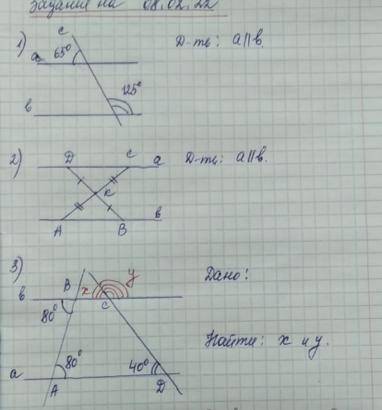 Задание на 08.02.22
1) c
a 65° Д-ть: a∥b.
125°
b
2) D C a Д-ть: a∥b.
K
A B b
3) Дано:
B x y
b C
80°
Найти: x и y.
80° 40°
a A D